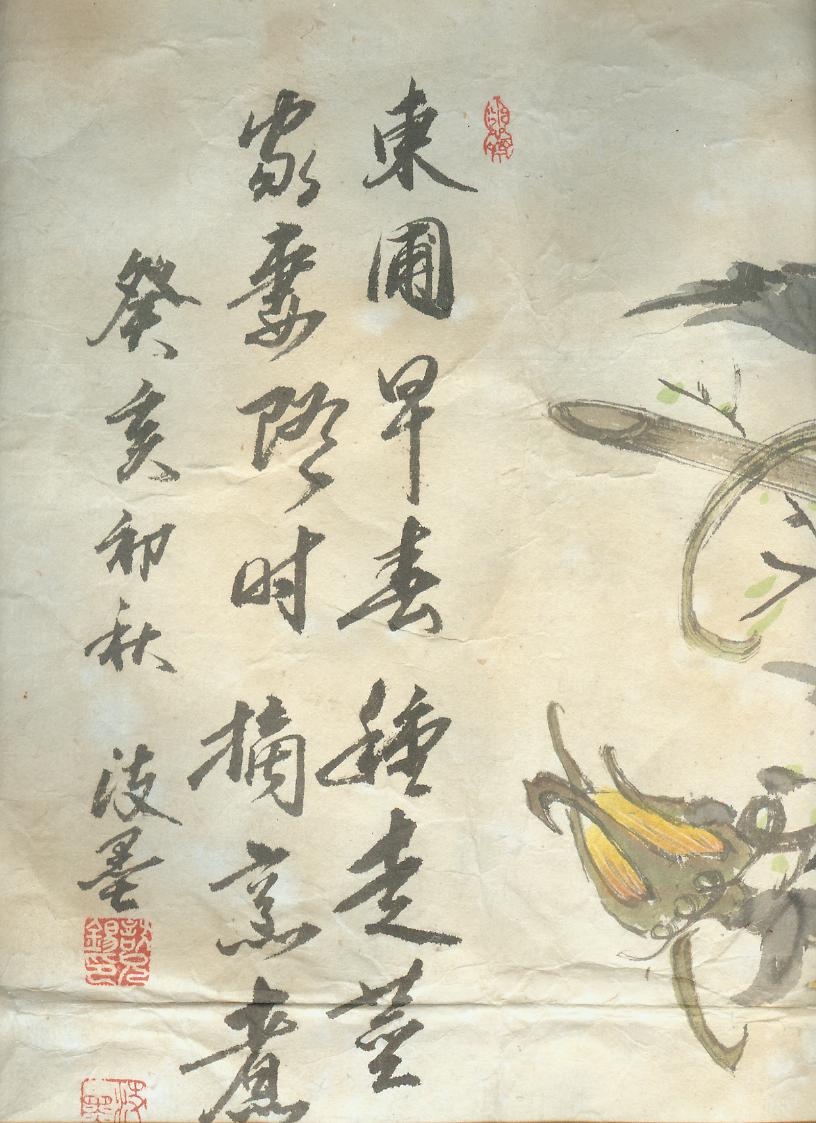 東圃早春種走莖
家妻隨时摘烹煮
癸亥初秋 波墨